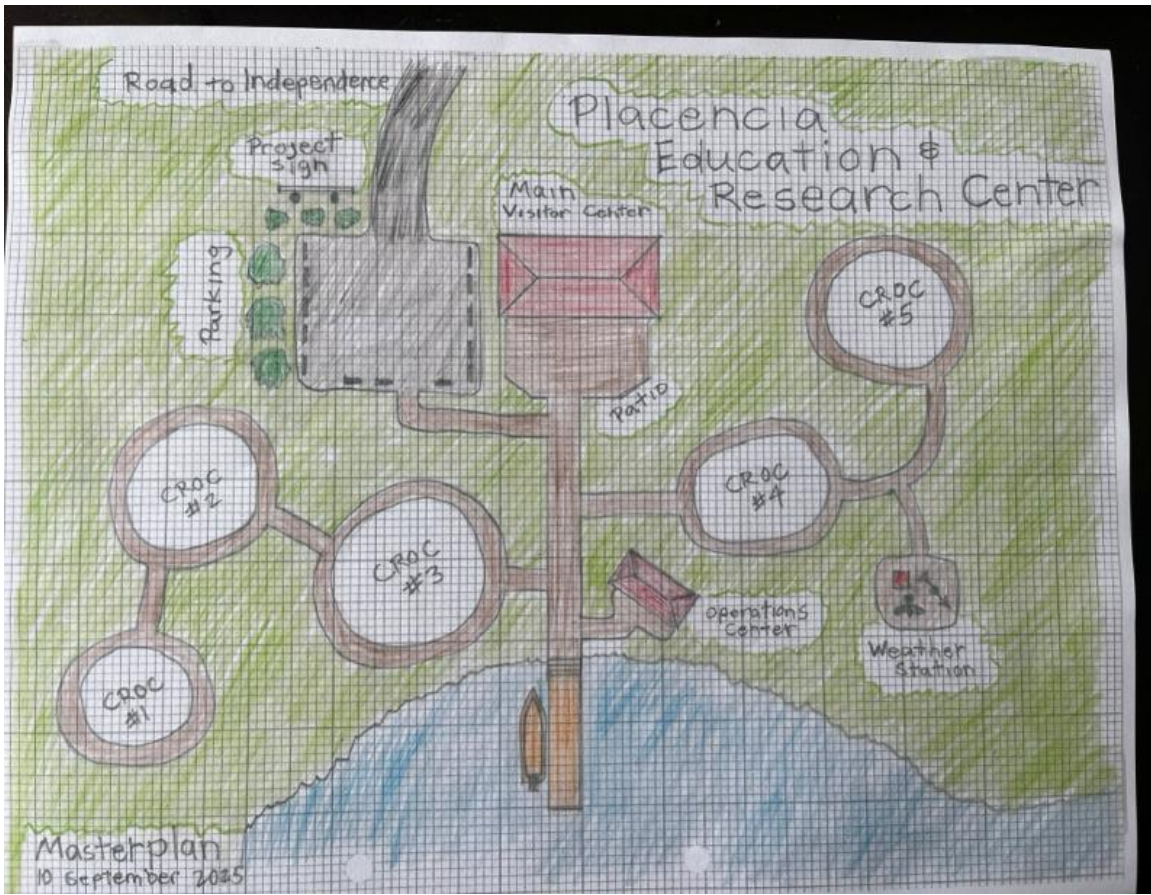 Road to Independence
Placencia
Education &
Research Center
Project
sign
Main
Visitor Center
Parking
Patio
CROC
#5
CROC
#2
CROC
#4
CROC
#3
Operations
Center
Weather
Station
CROC
#1
Masterplan
10 September 2025